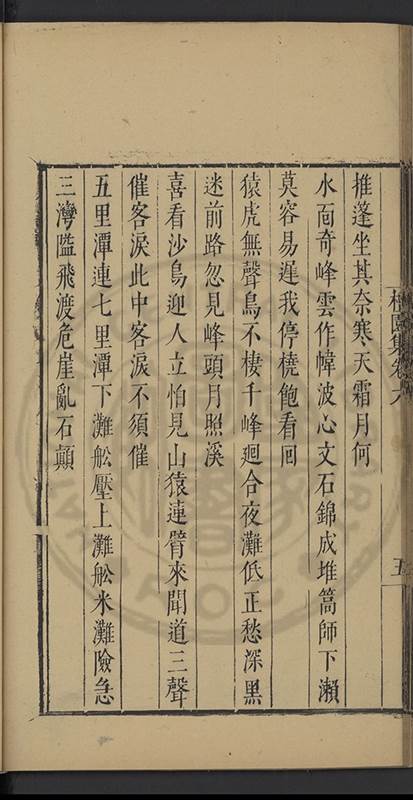 推蓬坐其奈寒天霜月何
水面奇峰雲作幃波心文石錦成堆篙師下瀨
莫容易遲我停橈飽看囘
猿虎無聲鳥不棲千峰迴合夜灘低正愁深黑
迷前路忽見峰頭月照溪
喜看沙鳥迎人立怕見山猿連臂來聞道三聲
催客淚此中客淚不須催
五里潭連七里潭下灘舩壓上灘舩米灘險急
三灣隘飛渡危崖亂石顚
園集卷六
五